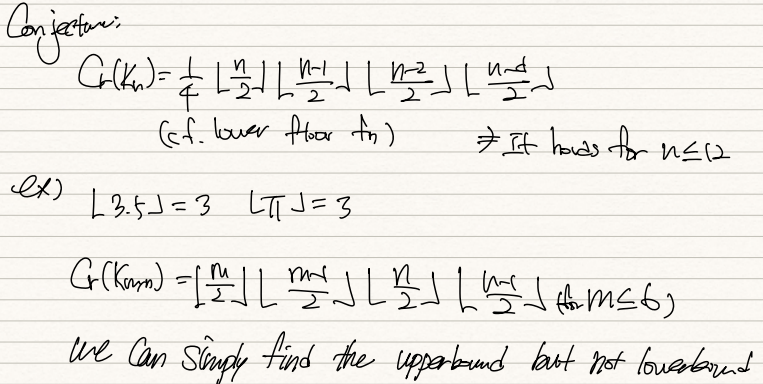 Conjecture:
Cr(Kn) = 1/4 ⌊n/2⌋ ⌊n-1/2⌋ ⌊n-2/2⌋ ⌊n-3/2⌋
(cf. lower floor fn) ⇒ It holds for n≤12
ex) ⌊3.5⌋ = 3 ⌊π⌋ = 3
Cr(Km,n) = ⌊m/2⌋ ⌊m-1/2⌋ ⌊n/2⌋ ⌊n-1/2⌋ (for m≤6)
we can simply find the upperbound but not lowerbound